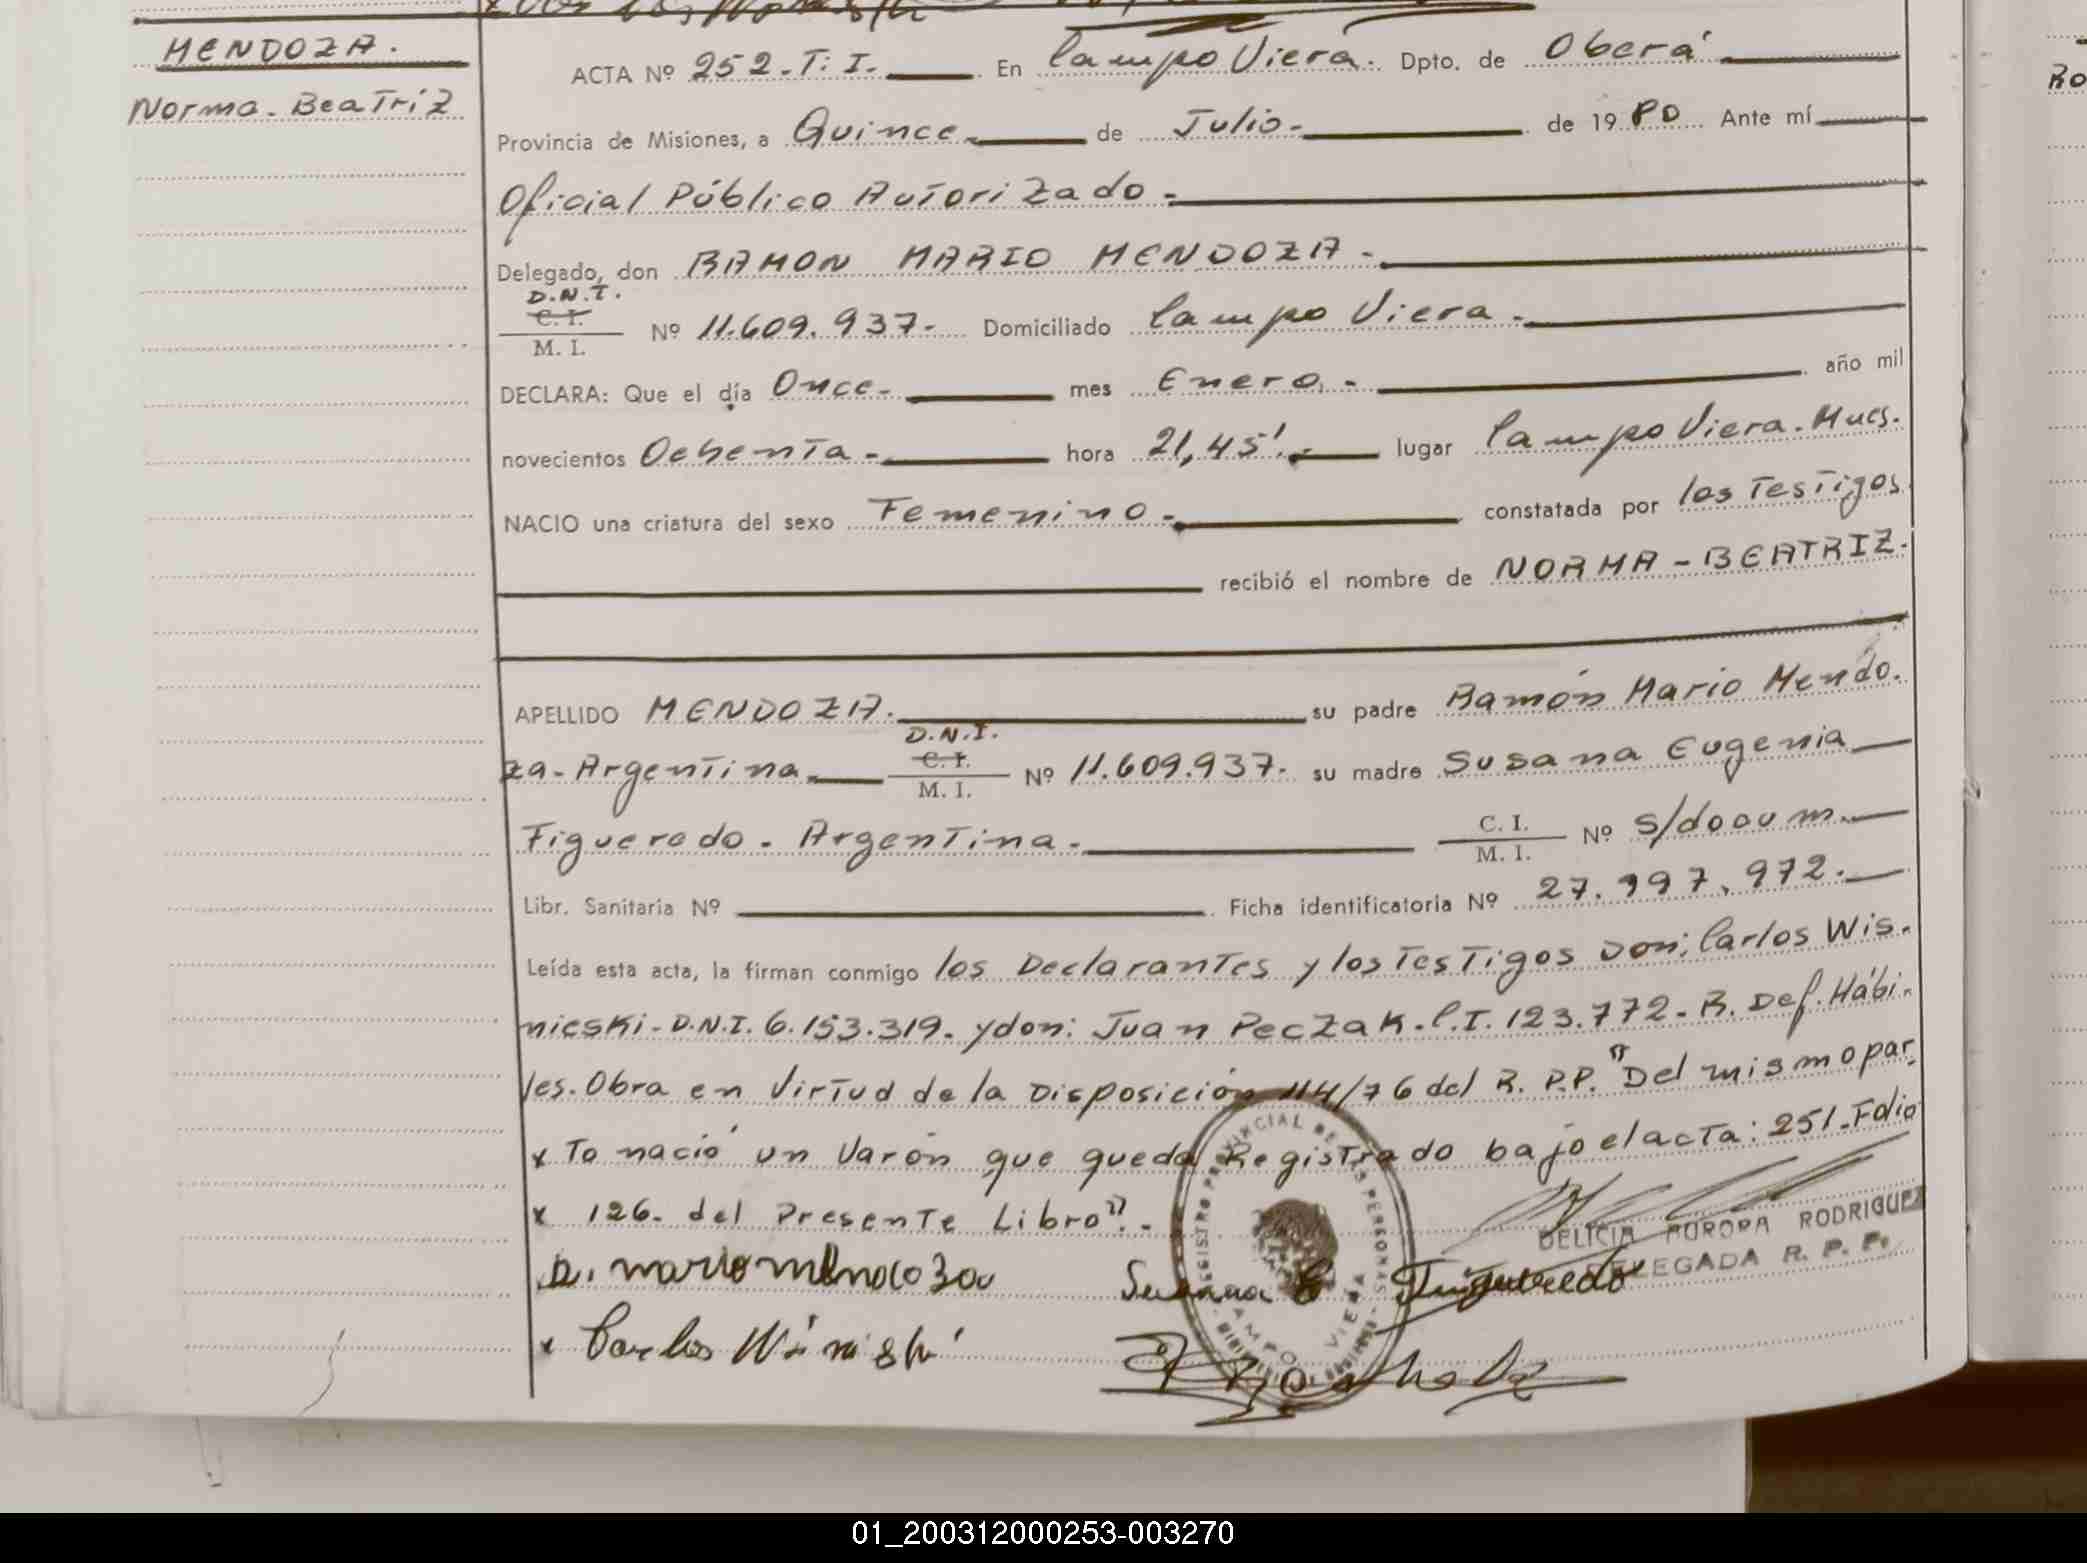 MENDOZA.
Norma. Beatriz
ACTA Nº 252. T. I. En Campo Viera. Dpto. de Oberá
Provincia de Misiones, a Quince de Julio. de 19 80 Ante mí
Oficial Público Autorizado.
Delegado, don RAMON MARIO MENDOZA.
D.N.I.
C. I.
M. I. Nº 11.609.937. Domiciliado Campo Viera.
DECLARA: Que el día Once. mes Enero. año mil
novecientos Ochenta. hora 21,45'. lugar Campo Viera. Mnes.
NACIO una criatura del sexo Femenino. constatada por los Testigos
recibió el nombre de NORMA - BEATRIZ.
APELLIDO MENDOZA. su padre Ramón Mario Mendo.
D.N.I.
za. Argentina. C. I. M. I. Nº 11.609.937. su madre Susana Eugenia
Figueredo. Argentina. C. I. M. I. Nº s/docum.
Libr. Sanitaria Nº Ficha identificatoria Nº 27.997.972.
Leída esta acta, la firman conmigo los Declarantes y los Testigos Don: Carlos Wis.
nieski. D.N.I. 6.153.319. y don: Juan Peczak. C.I. 123.772. R. Def. Hábi.
les. Obra en Virtud de la Disposición 114/76 del R. P.P. "Del mismo par.
x To nació un Varón que queda Registrado bajo el acta: 251. Folio
x 126. del Presente Libro".
DELICIA AURORA RODRIGUEZ
DELEGADA R. P. P.
R. mario mendoza Susana E Figueredo
x Carlos Winishi
REGISTRO PROVINCIAL DE LAS PERSONAS
CAMPO VIERA
01_200312000253-003270